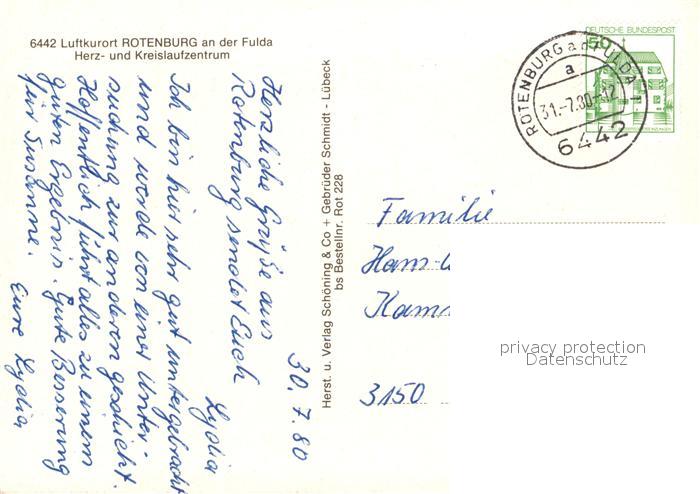 6442 Luftkurort ROTENBURG an der Fulda
Herz- und Kreislaufzentrum
30. 7. 80
Herzliche Grüße aus
Rotenburg sendet Euch
Lydia
Ich bin hier sehr gut untergebracht
und werde von einer Unter-
suchung zur anderen geschickt.
Hoffentlich führt alles zu einem
guten Ergebnis. Gute Besserung
für Susanne.
Eure Lydia
Herst. u. Verlag Schöning & Co + Gebrüder Schmidt - Lübeck
bs Bestellnr. Rot 228
DEUTSCHE BUNDESPOST
50
ROTENBURG a d FULDA 1
a
31.-7.80-12
6442
Familie
Hans-
3150
privacy protection
Datenschutz